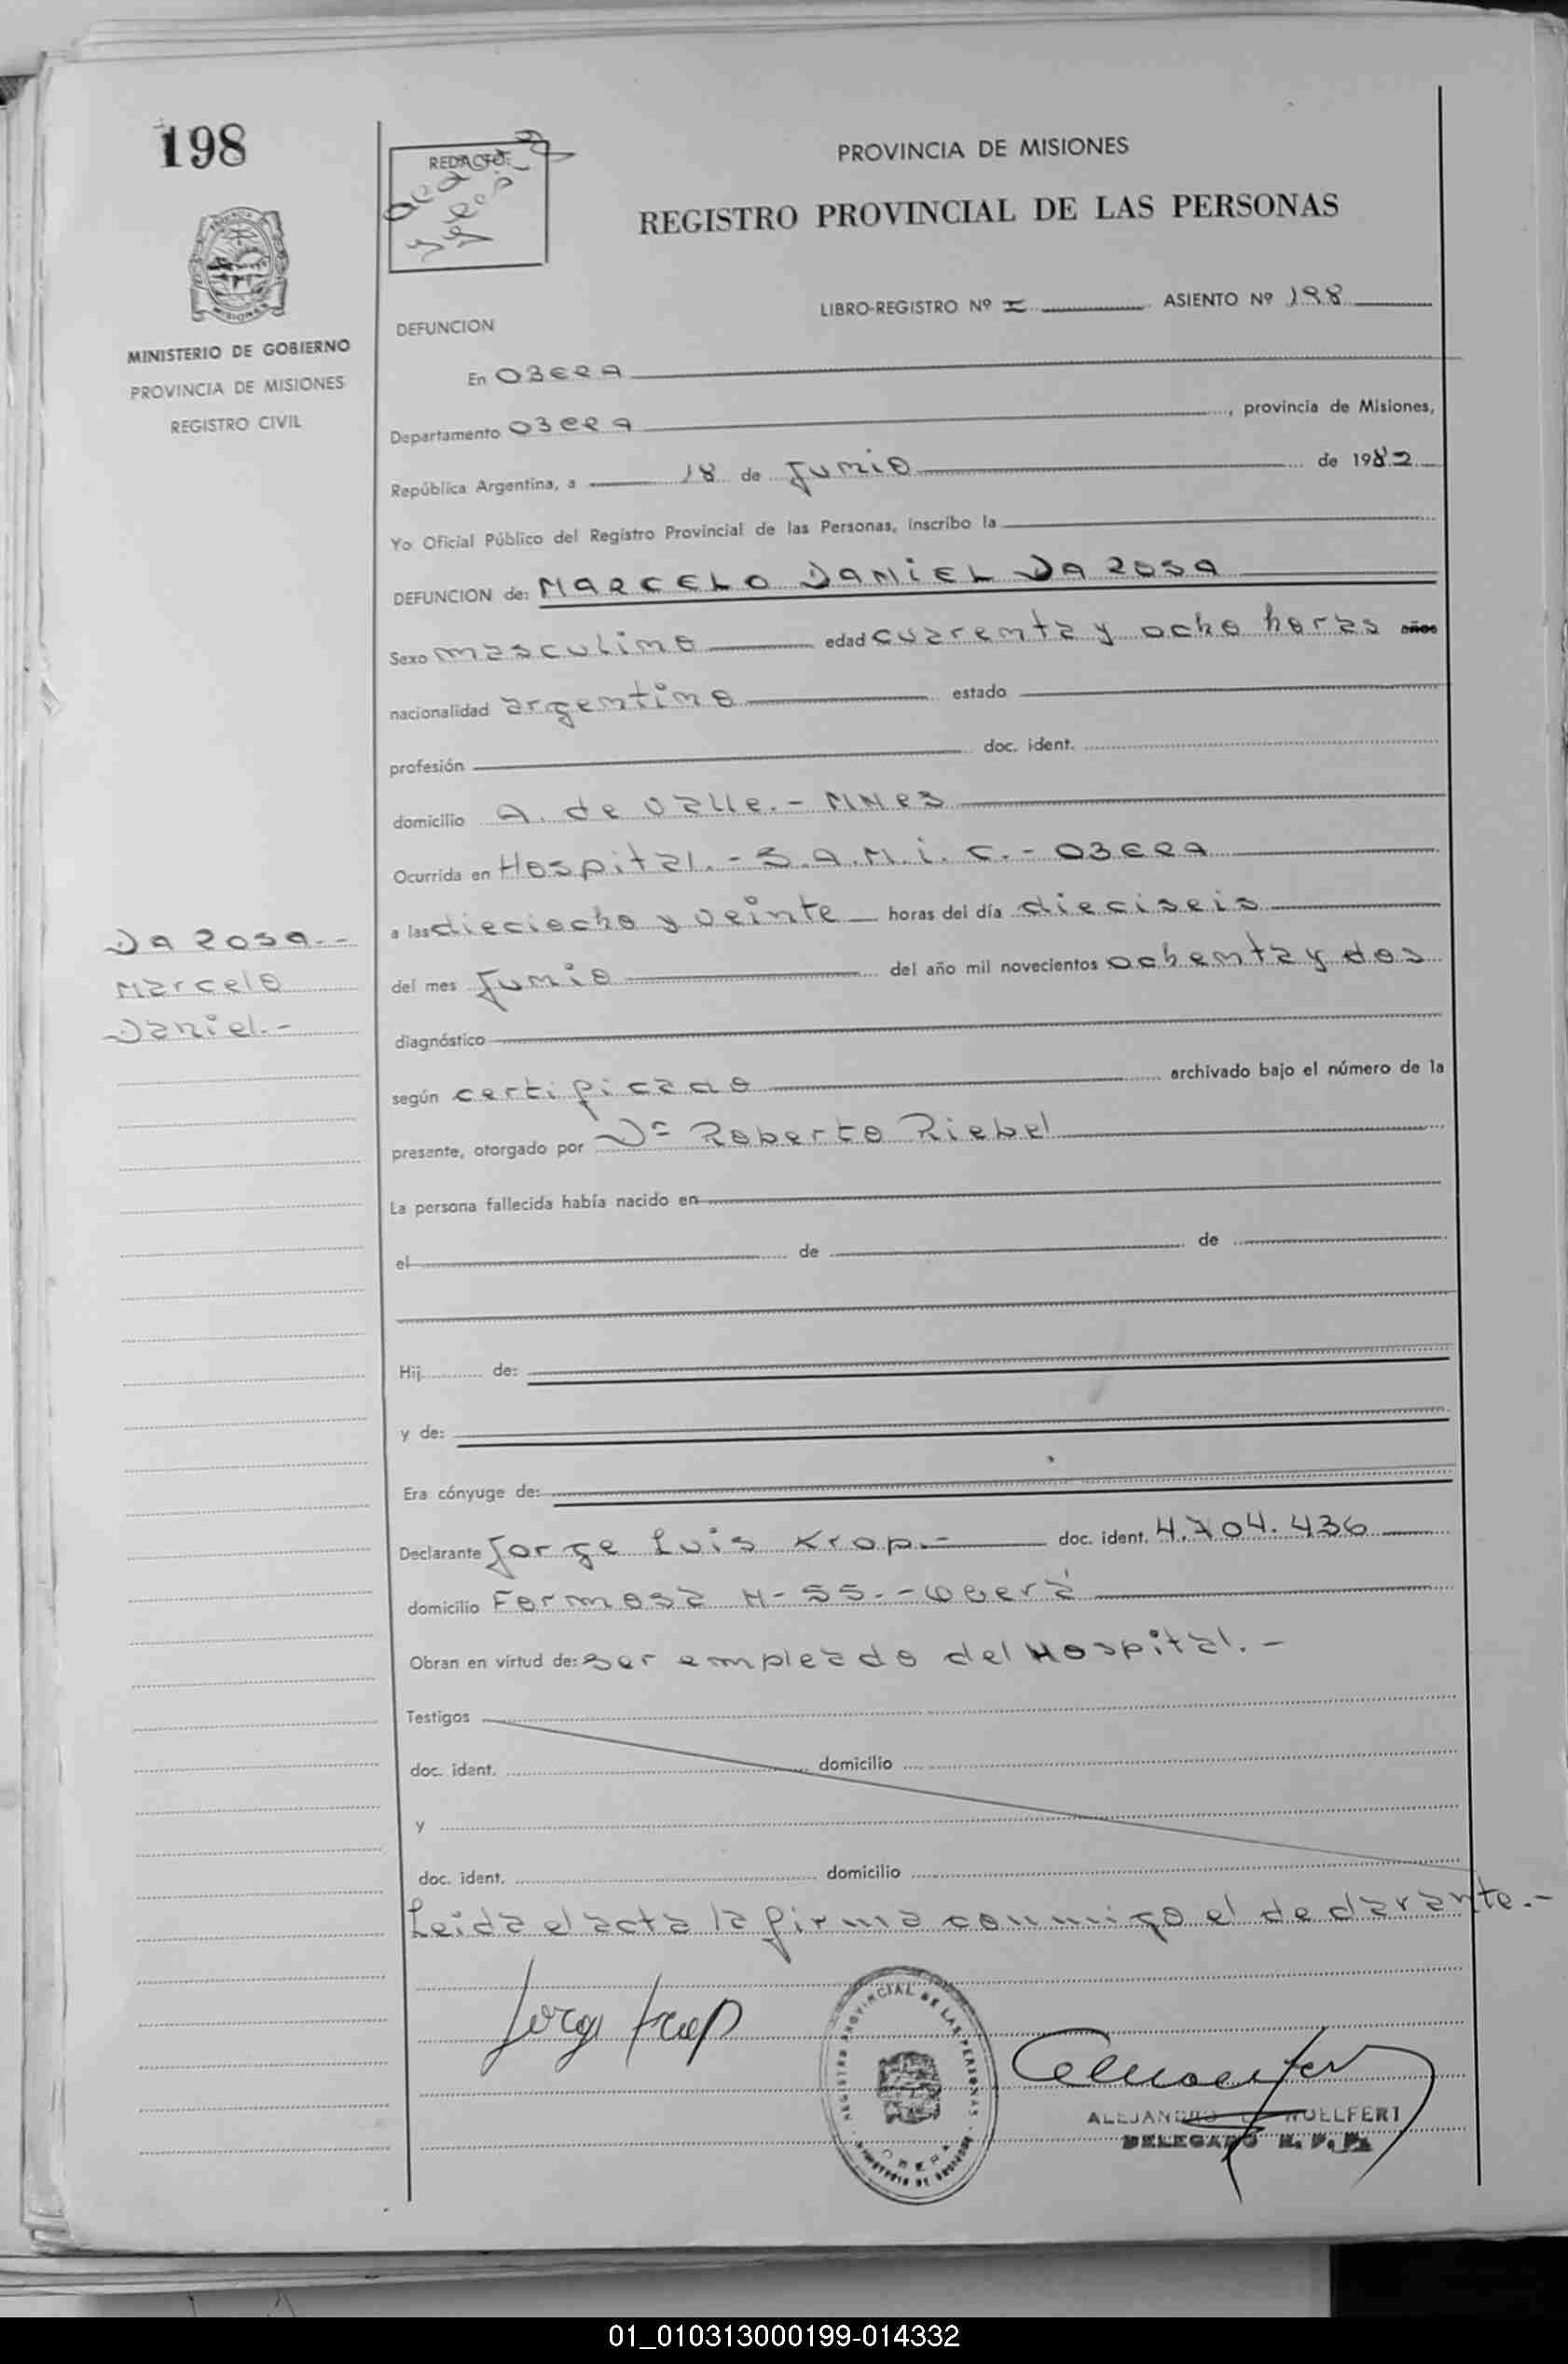 198
REDACTO:
PROVINCIA DE MISIONES
REGISTRO PROVINCIAL DE LAS PERSONAS
MISIONES
MINISTERIO DE GOBIERNO
PROVINCIA DE MISIONES
REGISTRO CIVIL
LIBRO-REGISTRO Nº I ASIENTO Nº 198
DEFUNCION
En OBERA
Departamento OBERA, provincia de Misiones,
República Argentina, a 18 de Junio de 1982
Yo Oficial Público del Registro Provincial de las Personas, inscribo la
DEFUNCION de: MARCELO DANIEL DA ROSA
Sexo masculino edad cuarenta y ocho horas años
nacionalidad argentino estado
profesión doc. ident.
domicilio A. de Valle.- MNES
Ocurrida en Hospital.- S.A.M.i.C.- OBERA
a las dieciocho y veinte horas del día dieciseis
del mes Junio del año mil novecientos ochenta y dos
DA ROSA.-
Marcelo
Daniel.-
diagnóstico
según certificado archivado bajo el número de la
presente, otorgado por Dr Roberto Riebel
La persona fallecida había nacido en
el de de
Hij de:
y de:
Era cónyuge de:
Declarante Jorge Luis Krop.- doc. ident. 4.704.436
domicilio Formosa N-55.-Oberá
Obran en virtud de: ser empleado del Hospital.-
Testigos
doc. ident. domicilio
y
doc. ident. domicilio
Leida el acta la firma conmigo el declarante.-
Jorge Krop
REGISTRO PROVINCIAL DE LAS PERSONAS
OBERA
MINISTERIO DE GOBIERNO
DELEGADO R. P. P.
01_010313000199-014332